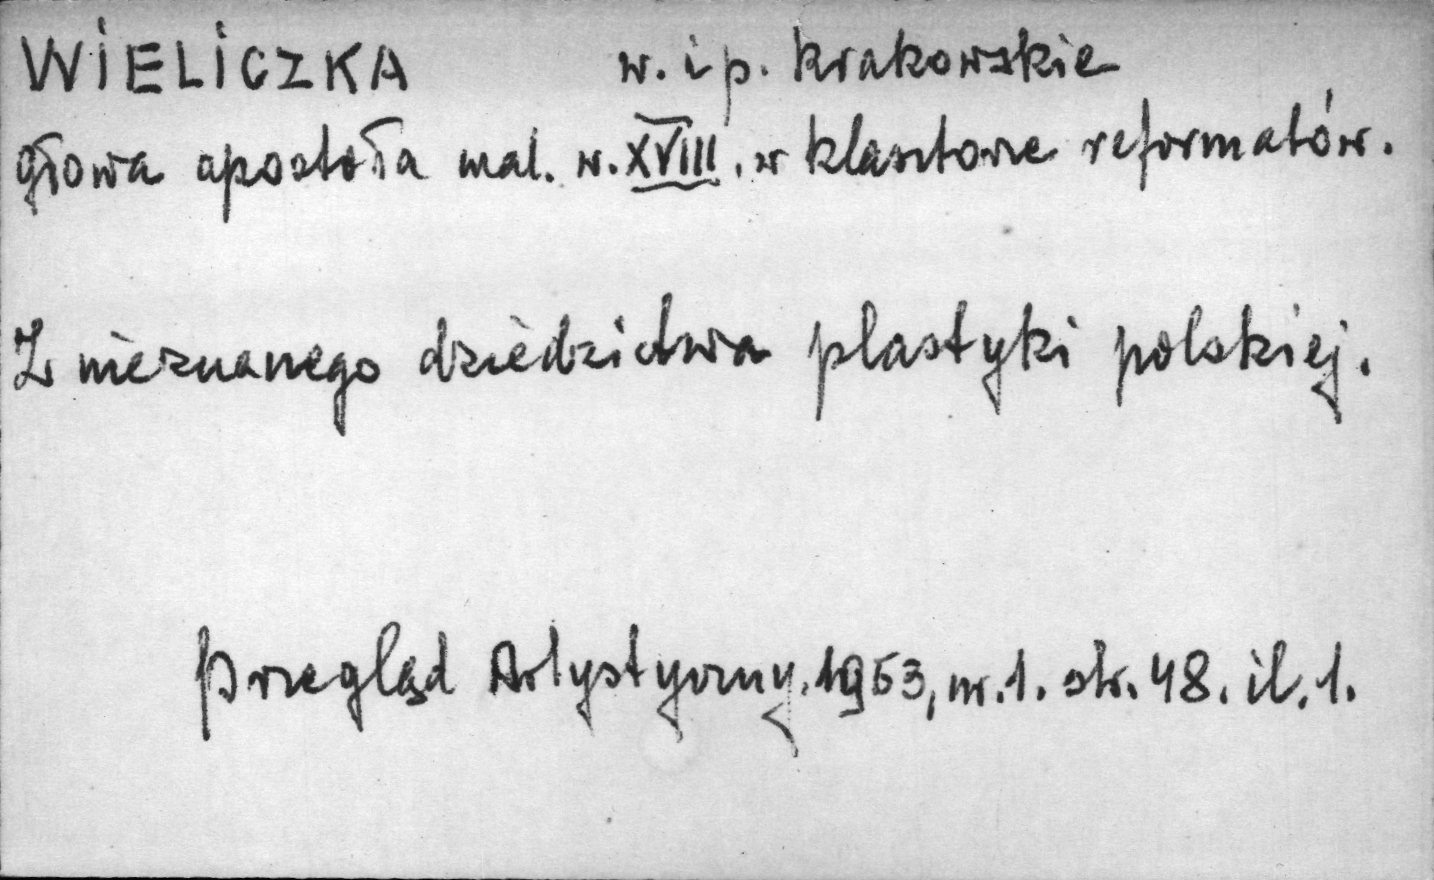 WIELICZKA w. i p. krakowskie
głowa apostoła mal. w. XVIII. w klasztorze reformatów.
Z nieznanego dziedzictwa plastyki polskiej.
Przegląd Artystyczny. 1953, nr. 1. str. 48. il. 1.